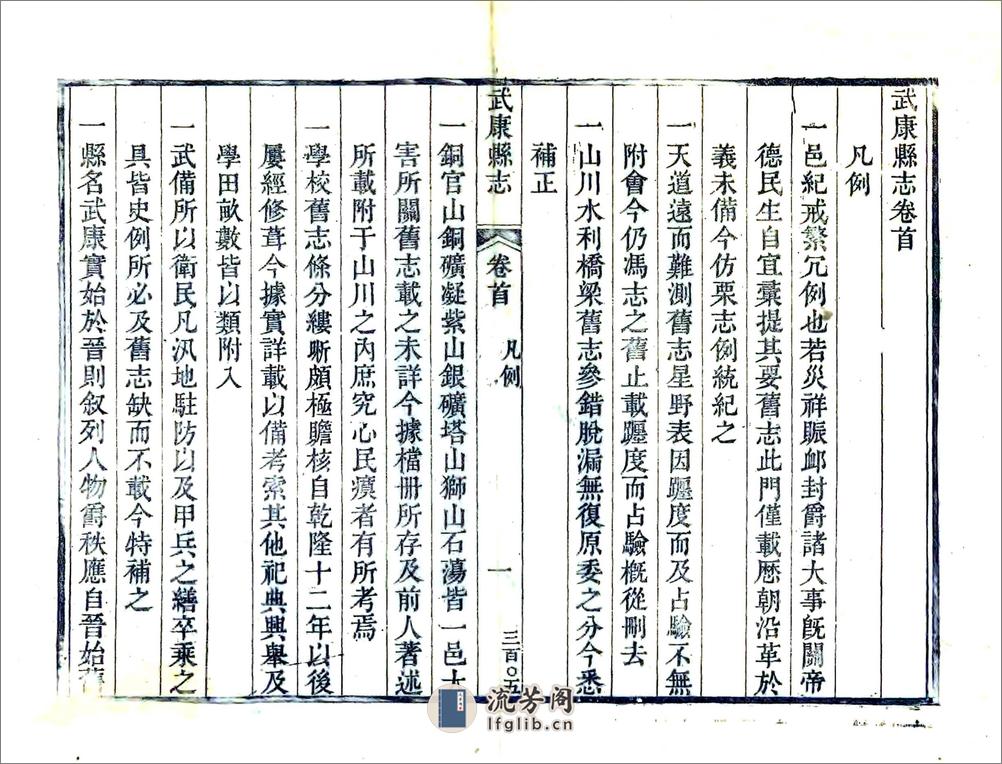 武康縣志卷首
凡例
一邑紀戒繁冗例也若災祥賑卹封爵諸大事旣關帝
德民生自宜彙提其要舊志此門僅載歷朝沿革於
義未備今仿栗志例統紀之
一天道遠而難測舊志星野表因躔度而及占驗不無
附會今仍馮志之舊止載躔度而占驗槪從刪去
一山川水利橋梁舊志參錯脫漏無復原委之分今悉
補正
武康縣志 卷首 凡例 一 三百〇五
一銅官山銅礦凝紫山銀礦塔山獅山石蕩皆一邑大
害所關舊志載之未詳今據檔册所存及前人著述
所載附于山川之內庶究心民瘼者有所考焉
一學校舊志條分縷晰頗極贍核自乾隆十二年以後
屢經修葺今據實詳載以備考索其他祀典興舉及
學田畝數皆以類附入
一武備所以衛民凡汛地駐防以及甲兵之繕卒乘之
具皆史例所必及舊志缺而不載今特補之
一縣名武康實始於晉則叙列人物爵秩應自晉始舊
流芳阁
lfglib.cn